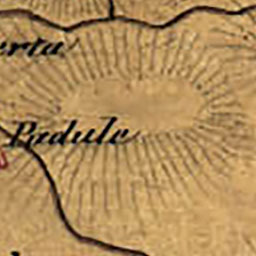 erta
Padule